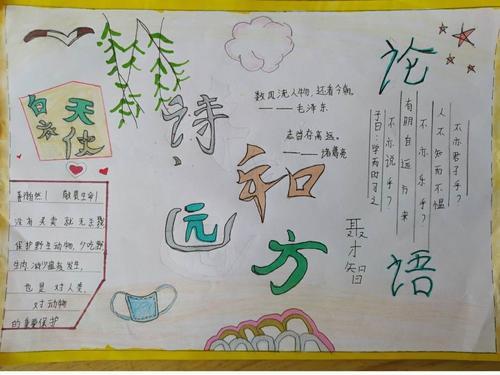 白衣
天使
诗
和
远
方
数风流人物，还看今朝。
———毛泽东
志当存高远。
———诸葛亮
论
语
子曰：学而时习之
不亦说乎？
有朋自远方来
不亦乐乎？
人不知而不愠
不亦君子乎？
聚才智
善待自然！ 敬畏生命！
没有买卖就无杀戮
保护野生动物，少吃野
生肉，减少瘟疫发生，
也是对人类，
对动物
的 保护